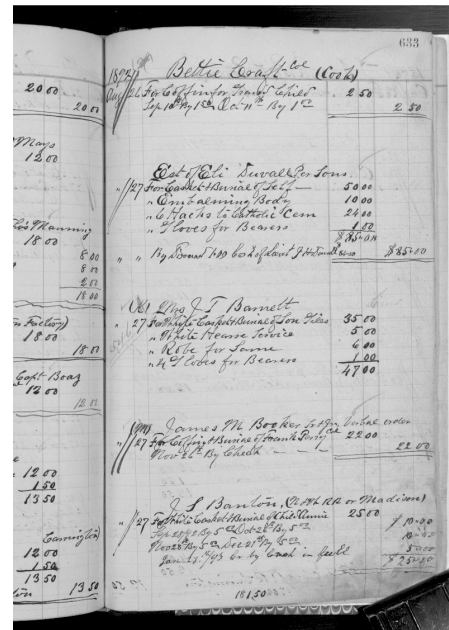 633
1892 Bettie Craft Col (Cook)
Aug 26 For Coffin for Child 2 50
Sep 10th By 1.00 Oct 11th By 1.50 2 50
Est of Eli Duvall Per Sons
" 27 For Casket & Burial of Self — 50 00
" Embalming Body 10 00
" 6 Hacks to Catholic Cem 24 00
" Gloves for Bearers 1 00
$85.00
" " By Discount 1.00 Cash of J H Duvall 84.00 $85.00
Mrs J. T. Barnett
" 27 For White Casket & Burial of Son Giles 35 00
" White Hearse Service 5 00
" Robe for Same 6 00
" 4 Gloves for Bearers 1 00
47 00
James M Booker verbal order
" 27 For Coffin & Burial of Frank Perry Col 22 00
Nov 26 By Check — — — 22 00
J. S. Banton, (N & W RR or Madison)
" 27 For White Casket & Burial of Child Annie 25 00
By 5.00 Oct 28th By 5.00 10.00
Nov 28th By 5.00 Dec 21st By 5.00 10.00
Jan 1893 by Cash in full 5.00
$25.00
181.50
20 00
20 00
Mays
12 00
Manning
18 00
8 00
8 00
2 00
18 00
Factory)
18 00
18 00
Capt Boaz
12 00
12 00
12 00
1 50
13 50
Carrington)
12 00
1 50
13 50
13 50